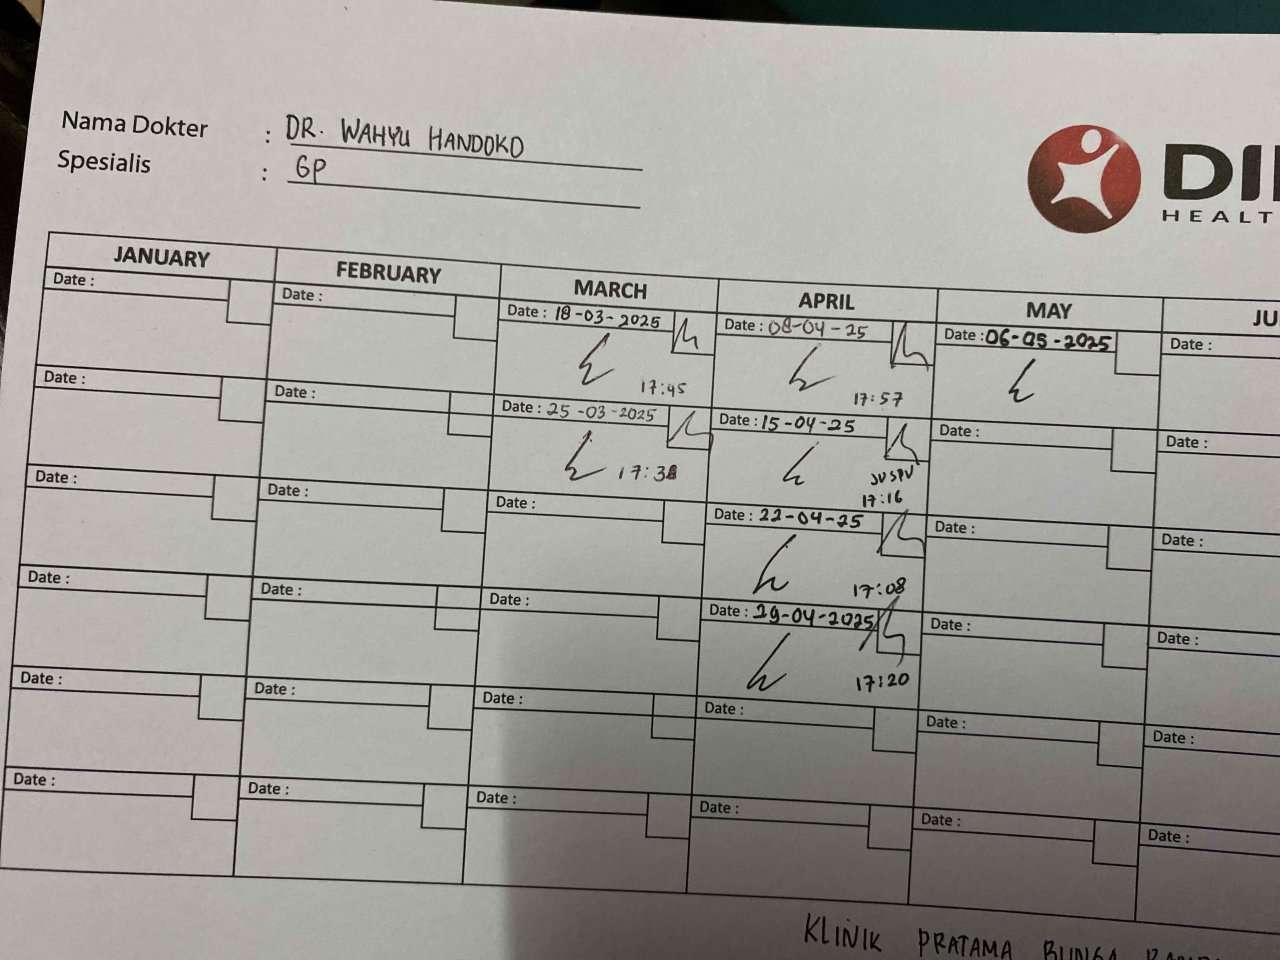 Nama Dokter : DR. WAHYU HANDOKO
Spesialis : GP
HEALT
JANUARY FEBRUARY MARCH APRIL MAY JU
Date : Date : Date : 18-03-2025 Date : 08-04-25 Date : 06-05-2025 Date :
17:45 17:57
Date : Date : Date : 25-03-2025 Date : 15-04-25 Date : Date :
17:38 JV SPV
17:16
Date : Date : Date : Date : 22-04-25 Date : Date :
17:08
Date : Date : Date : Date : 29-04-2025 Date : Date :
17:20
Date : Date : Date : Date : Date : Date :
Date : Date : Date : Date : Date : Date :
KLINIK PRATAMA BUNGA